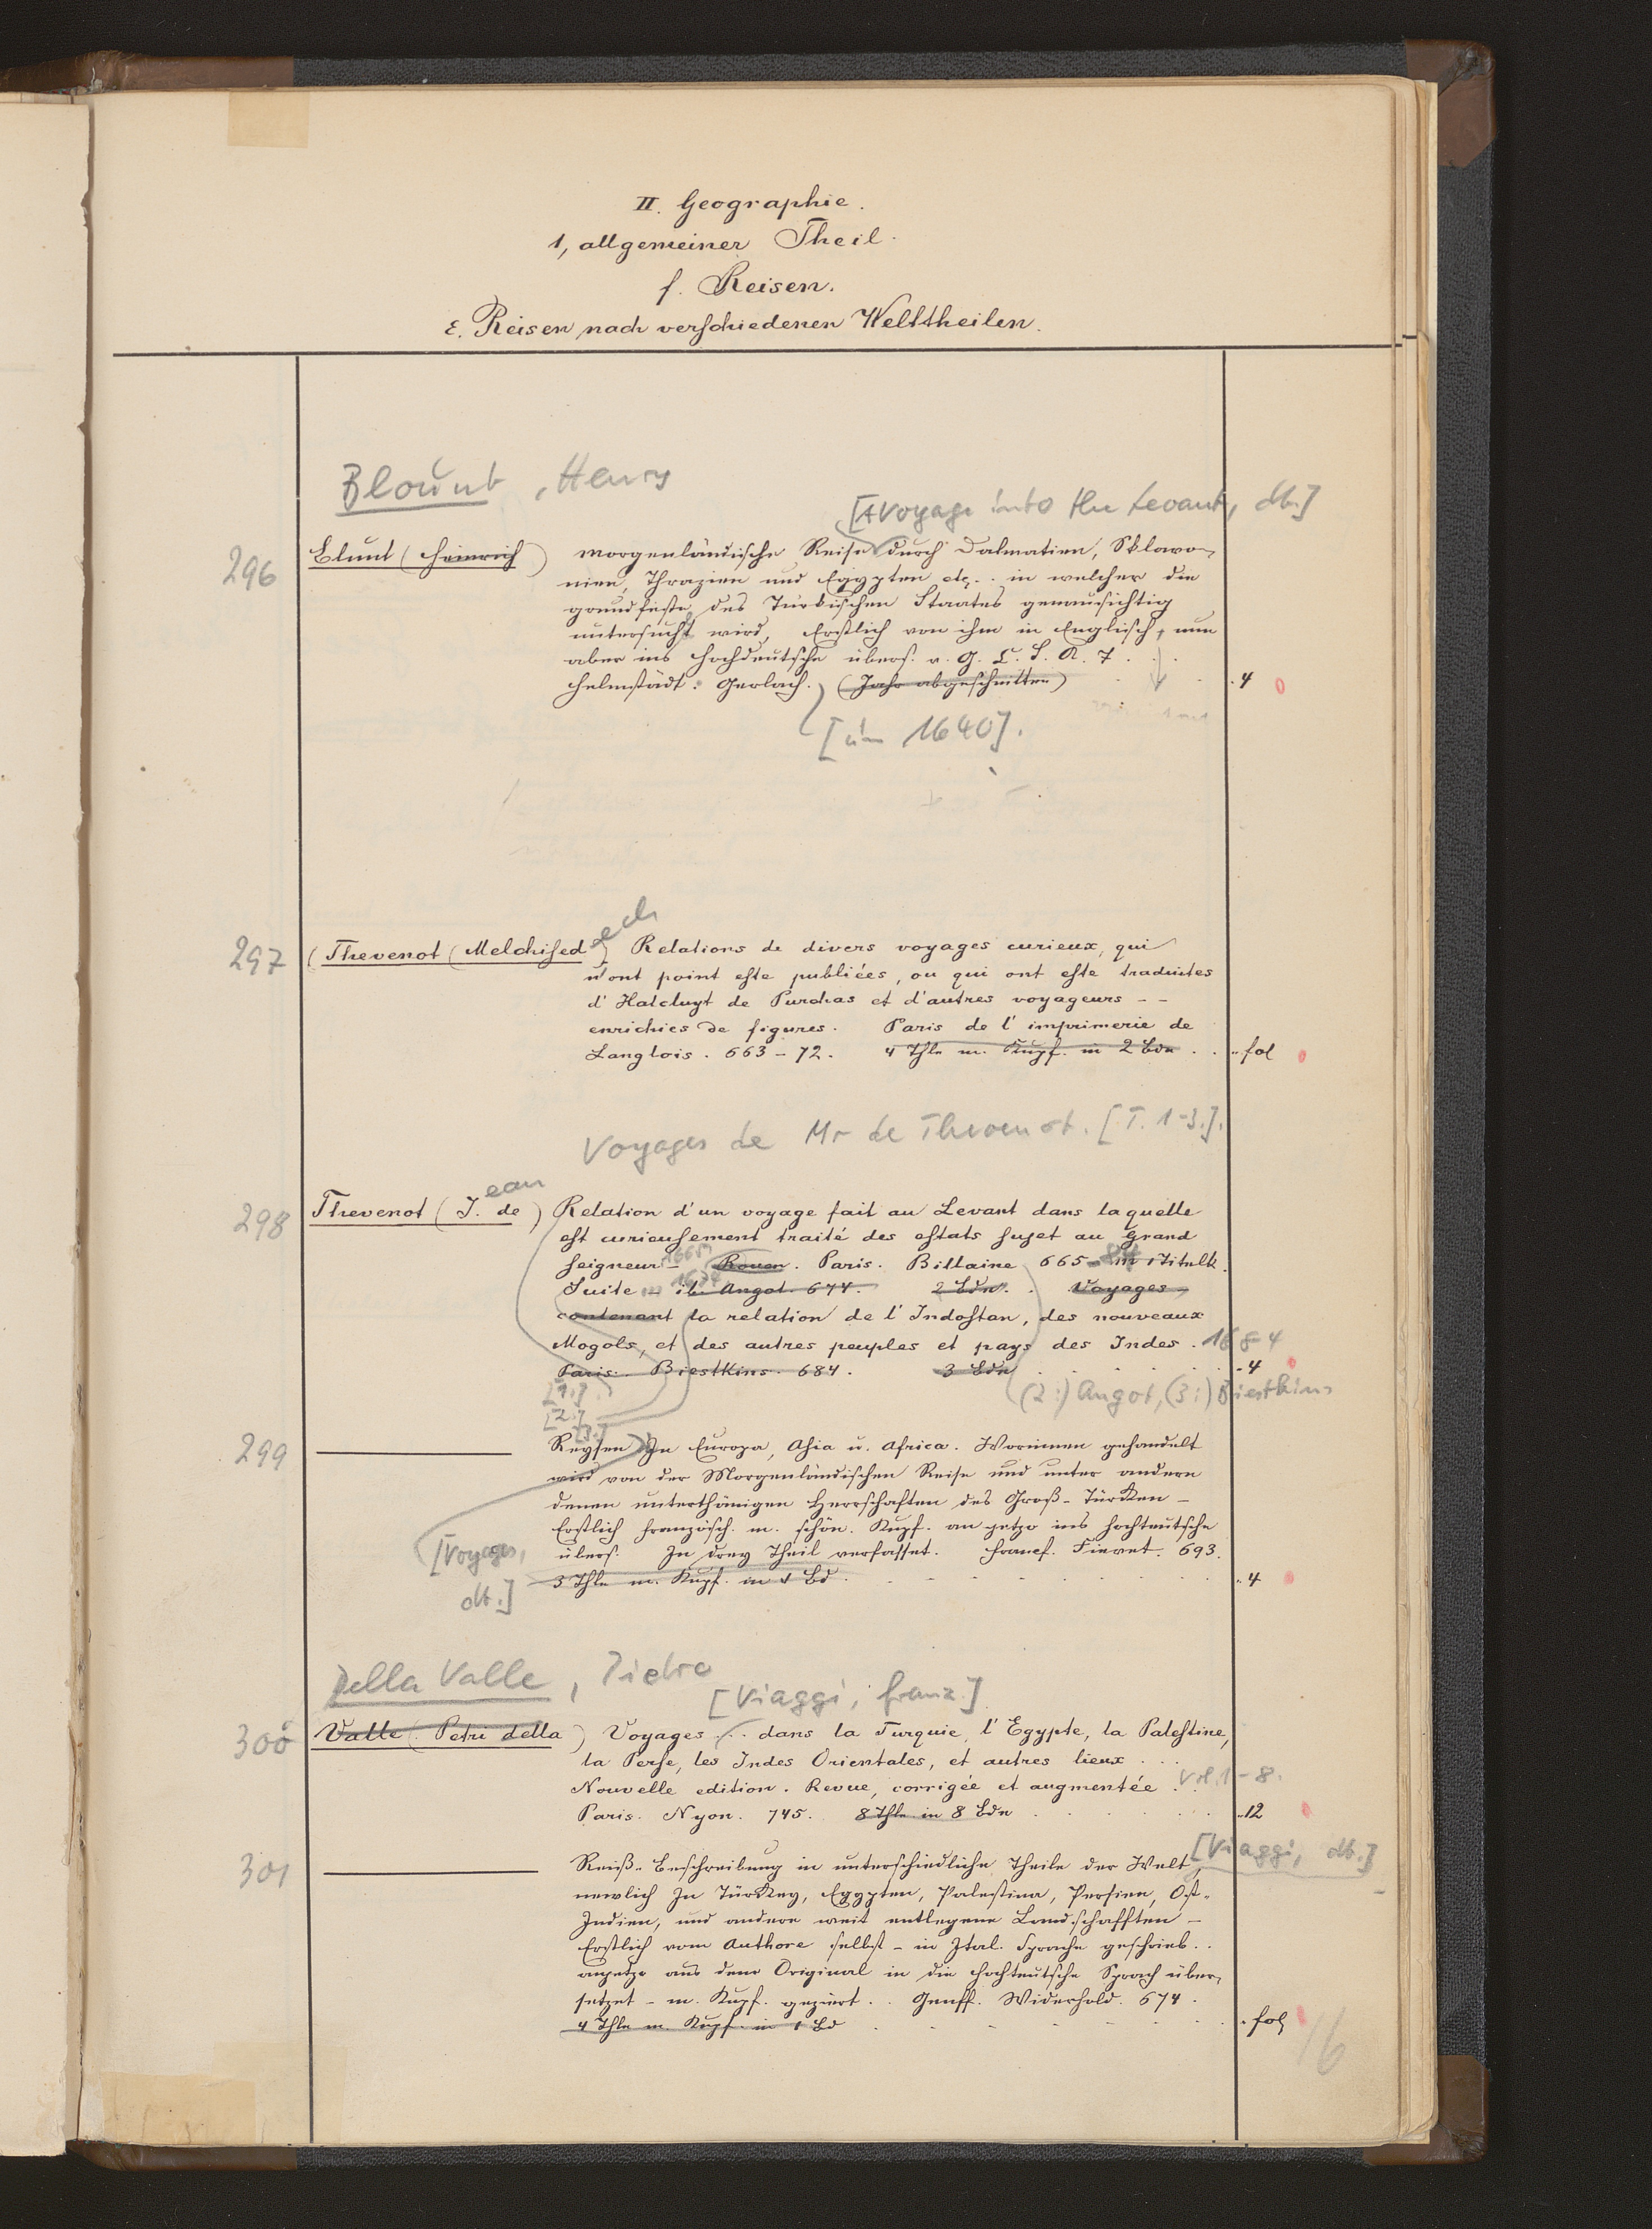 II. Geographie.
1, allgemeiner Theil.
f. Reisen.
ε. Reisen nach verschiedenen Welttheilen.
Blount, Henry
[A Voyage into the Levant, dt.]
296 Blunt (Heinrich) Morgenländische Reise durch Dalmatien, Sklavo-
nien, Thrazien und Egypten etz. . in welcher die
grundfeste des Türkischen Staates genausichtig
untersucht wird, Erstlich von ihm in Englisch, nun
aber ins Hochdeutsche übers. v. G. C. S. A. T . . .
Helmstädt: Gerlach. (Jahr abgeschnitten) . . . 4 0
[um 1640].
297 (Thevenot (Melchised ech) Relations de divers voyages curieux, qui
n'ont point este publiées, ou qui ont este traduites
d'Hatcluyt de Purchas et d'autres voyageurs - -
enrichies de figures. Paris de l'imprimerie de
Langlois. 663-72. 4 Thle m. Kupf. in 2 Bdn . . fol 0
Voyages de Mr de Thevenot. [T. 1-3.].
298 Thevenot (J. ean de) Relation d'un voyage fait au Levant dans laquelle
est curieusement traité des estats sujet au Grand
Seigneur - 1665 Rouen. Paris. Billaine 665 - 84 m 1 Titelk.
Suite - 1674 ib. Angot. 674. 2 Bdn. . Voyages
contenant la relation de l'Indostan, des nouveaux
Mogols, et des autres peuples et pays des Indes. 1684
Paris. Biestkins. 684. 3 Bdn . . . 4
[1.] (2:) Angot, (3:) Biestkins
[2.]
[3.]
299 Reysen In Europa, Asia u. Africa. Worinnen gehandelt
wird von der Morgenländischen Reise und unter andern
denen unterthänigen Herrschaften des Groß-Türken -
Erstlich französch. m. schön. Kupf. an yetzo ins Hochteutsche
[Voyages, übers. In drey Theil verfasset. Francf. Fievet. 693.
dt.] 3 Thle m. Kupf. in 1 Bd . . . 4
Della Valle, Pietro
[Viaggi, franz.]
300 Valle (Petri della) Voyages . . dans la Turquie, l'Egypte, la Palestine,
la Perse, les Indes Orientales, et autres lieux . . .
Nouvelle edition. Revue, corrigée et augmentée . . Vol. 1-8.
Paris. Nyon. 745. 8 Thle in 8 Bdn . . . 12
[Viaggi, dt.]
301 Reiß-Beschreibung in unterschiedliche Theile der Welt,
nemlich In Türkey, Egypten, Palestina, Persien, Ost-
Indien, und andere weit entlegene Landschafften -
Erstlich vom Authore selbst - in Ital. Sprache geschrieb. .
anyetzo aus dem Original in die Hochteutsche Sprach über-
setzet - m. Kupf. geziert. . Genff. Widerhold. 674.
4 Thle m. Kupf. in 1 Bd . . . fol
16